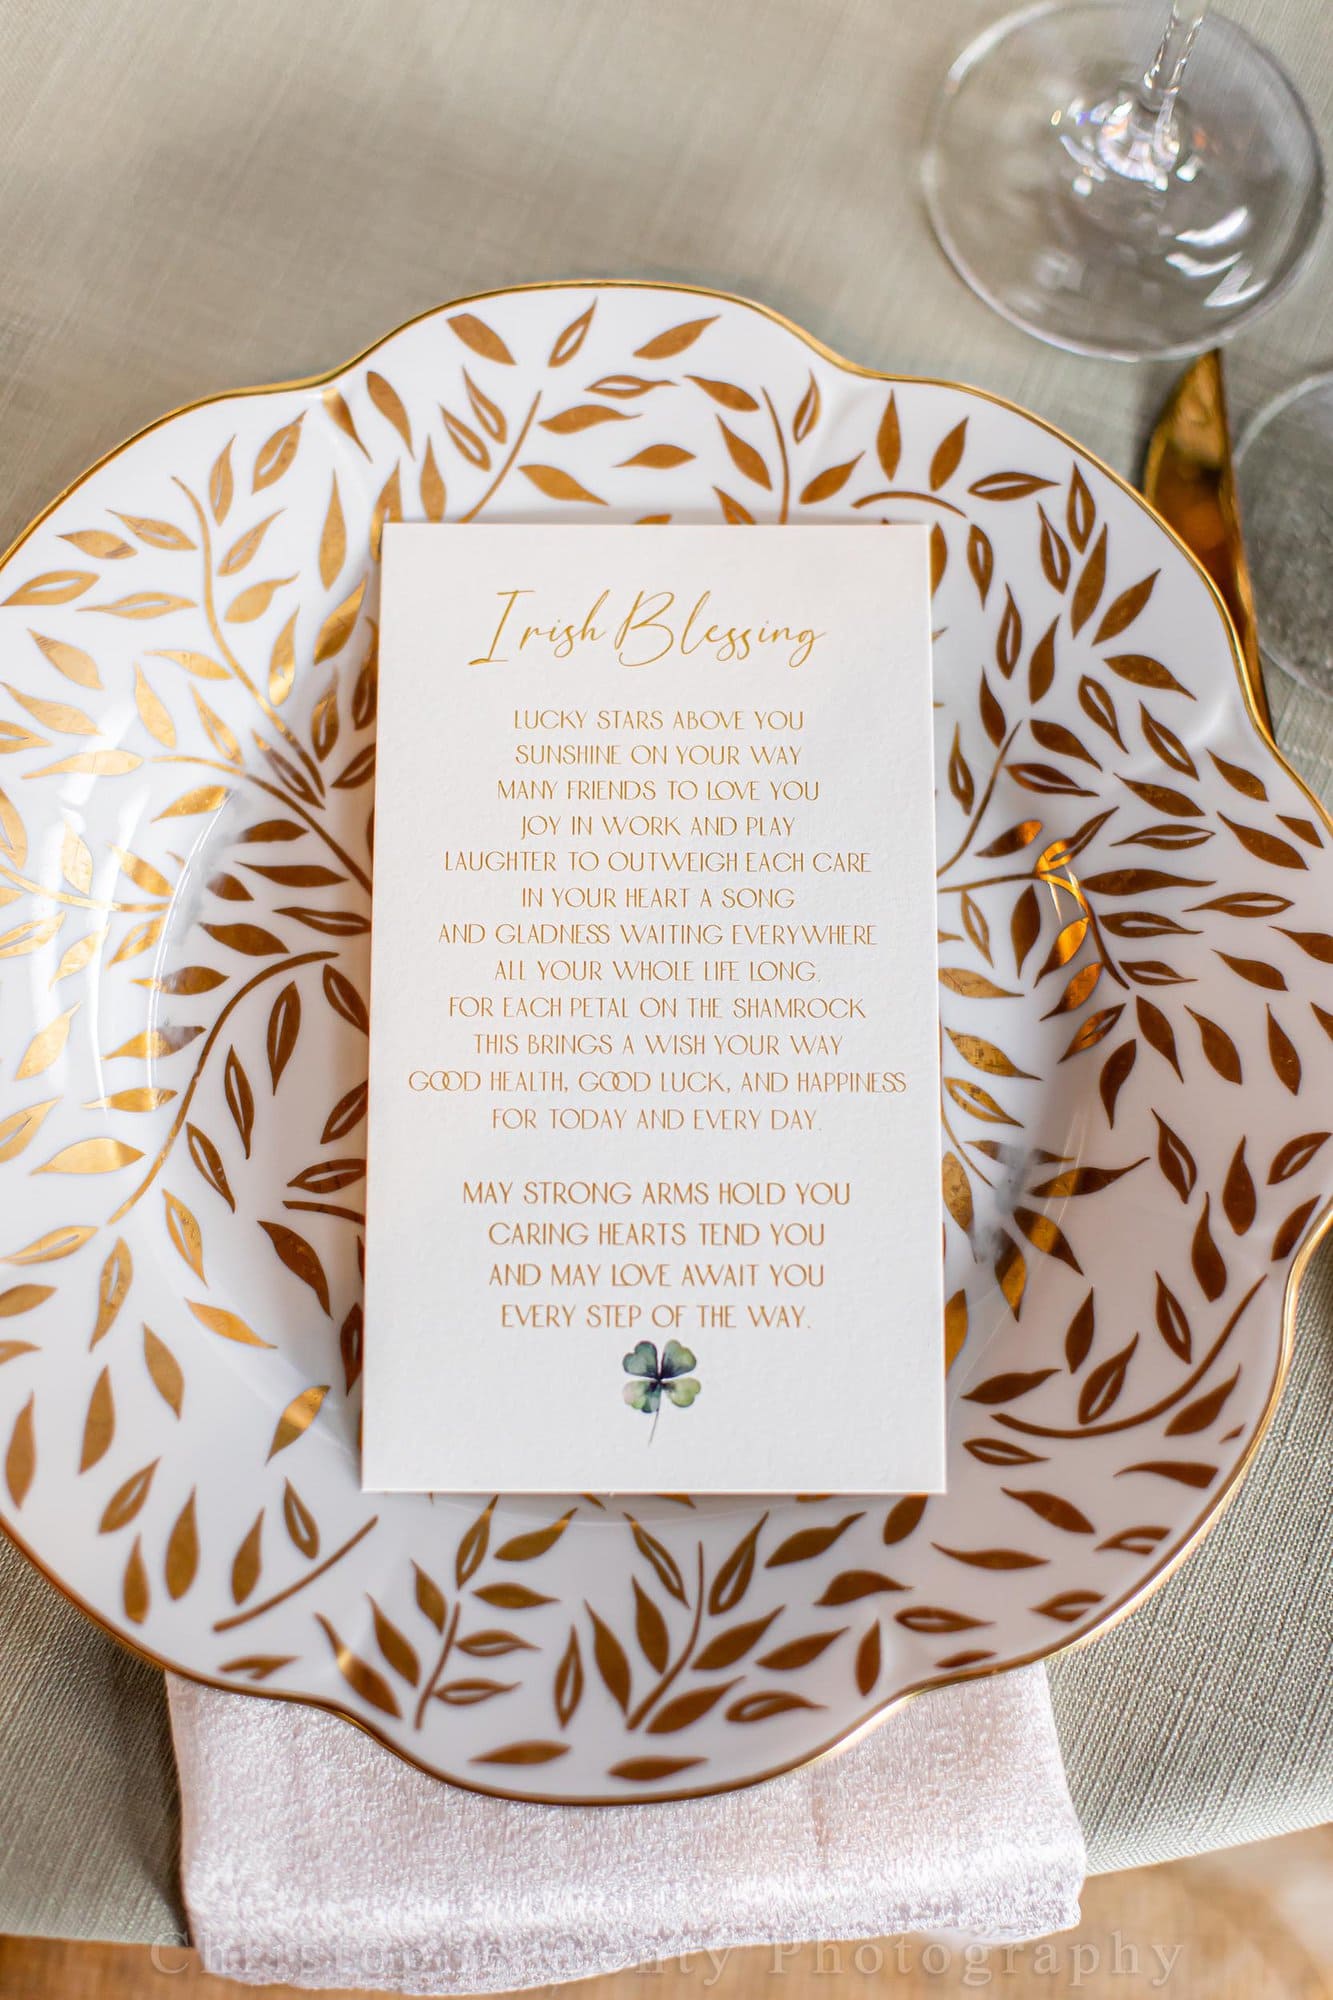 Irish Blessing
LUCKY STARS ABOVE YOU
SUNSHINE ON YOUR WAY
MANY FRIENDS TO LOVE YOU
JOY IN WORK AND PLAY
LAUGHTER TO OUTWEIGH EACH CARE
IN YOUR HEART A SONG
AND GLADNESS WAITING EVERYWHERE
ALL YOUR WHOLE LIFE LONG.
FOR EACH PETAL ON THE SHAMROCK
THIS BRINGS A WISH YOUR WAY
GOOD HEALTH, GOOD LUCK, AND HAPPINESS
FOR TODAY AND EVERY DAY.
MAY STRONG ARMS HOLD YOU
CARING HEARTS TEND YOU
AND MAY LOVE AWAIT YOU
EVERY STEP OF THE WAY.
Photography